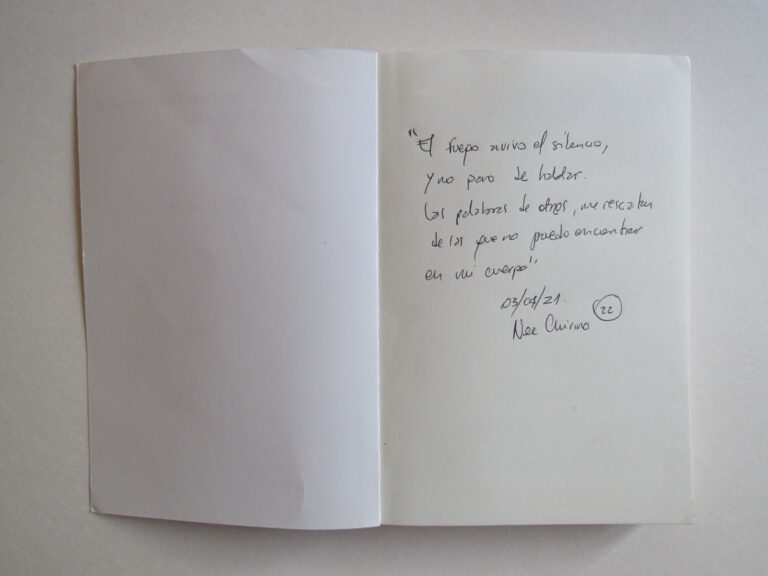 "El fuego avivo el silencio,
y no paro de hablar.
Las palabras de otros, me rescatan
de las que no puedo encontrar
en mi cuerpo"
03/04/21.
22
Chirino